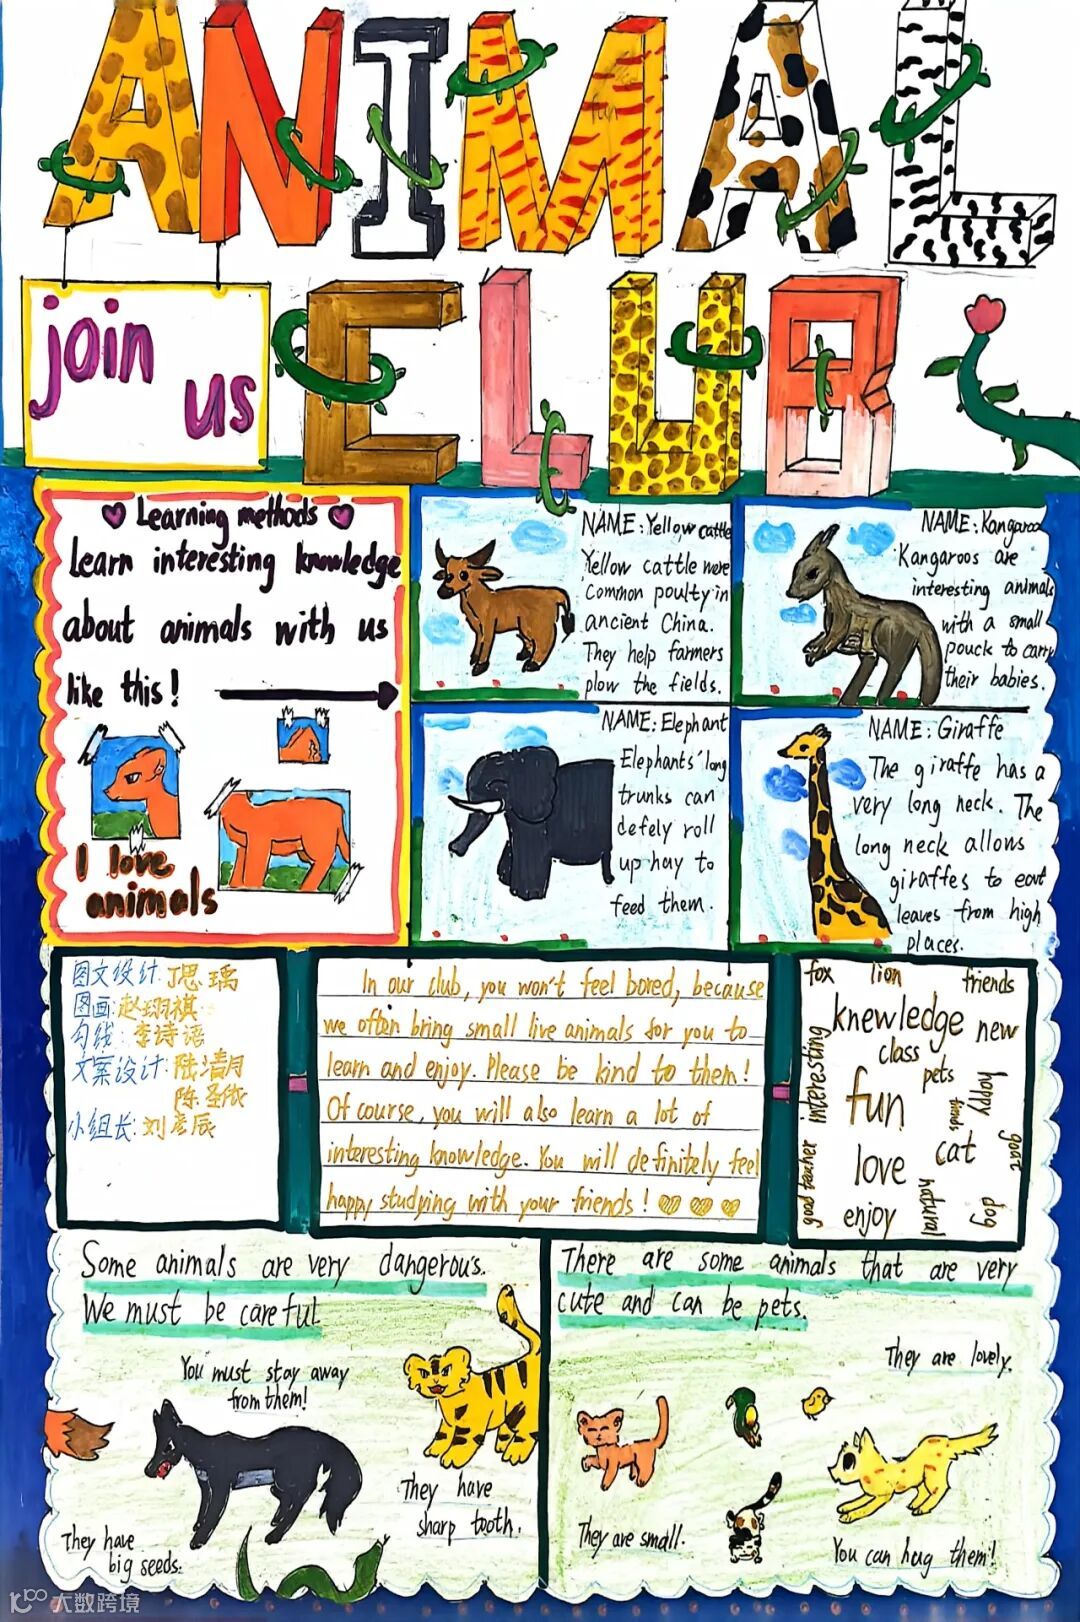 ANIMAL
join us
CLUB
Learning methods
Learn interesting knowledge
about animals with us
like this!
I love
animals
NAME: Yellow cattle
Yellow cattle were
common poulty in
ancient China.
They help farmers
plow the fields.
NAME: Kangaroo
Kangaroos are
interesting animals
with a small
pouck to carry
their babies.
NAME: Elephant
Elephants' long
trunks can
defely roll
up hay to
feed them.
NAME: Giraffe
The giraffe has a
very long neck. The
long neck allows
giraffes to eat
leaves from high
places.
图文设计:丁思瑀
图画:赵珝祺
勾线:李诗语
文案设计:陆清月
陈圣依
小组长:刘彦辰
In our club, you won't feel bored, because
we often bring small live animals for you to
learn and enjoy. Please be kind to them!
Of course, you will also learn a lot of
interesting knowledge. You will definitely feel
happy studying with your friends!
fox lion friends
knewledge new
class
interesting
pets
happy
fun
friends
cat
goat
good teacher
love
natural
dog
enjoy
Some animals are very dangerous.
We must be careful.
You must stay away
from them!
They have
sharp tooth.
They have
big seeds.
There are some animals that are very
cute and can be pets.
They are lovely.
They are small.
You can hug them!
大数跨境